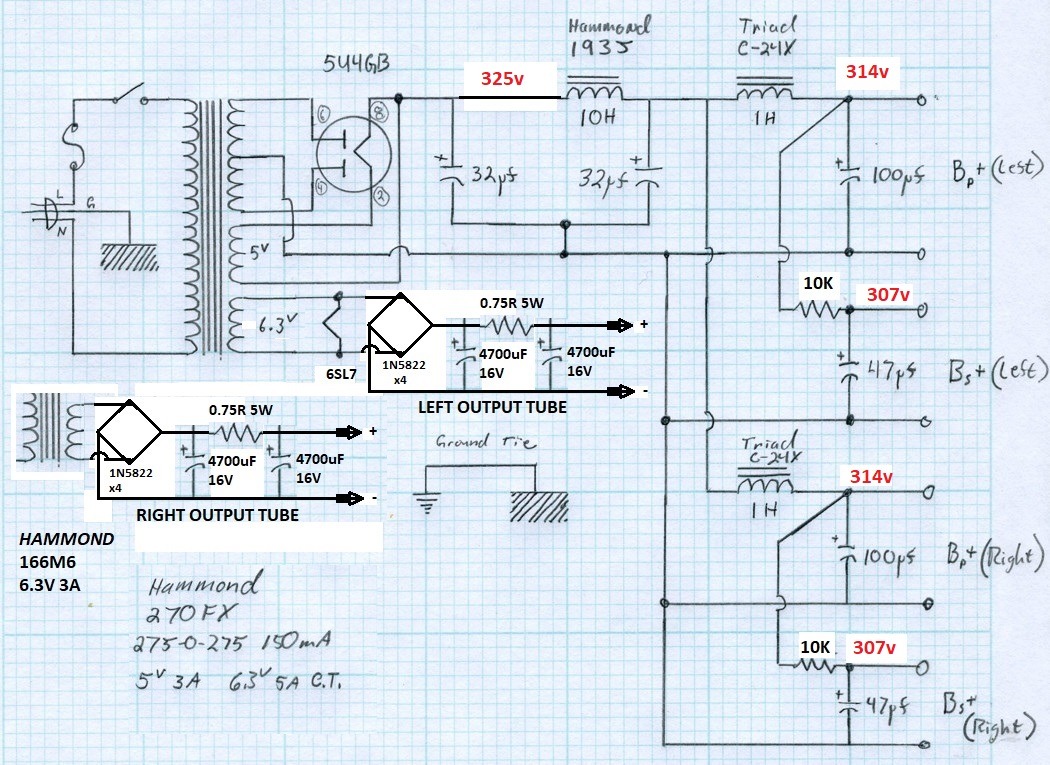 Hammond
193J
Triad
C-24X
5U4GB
325v
314v
10H
1H
6
8
4
2
+
32µf
+
32µf
+
100µf
Bp+ (Left)
L
G
N
5V
6.3V
10K
307v
0.75R 5W
+
+
4700uF
16V
+
4700uF
16V
1N5822
x4
6SL7
-
LEFT OUTPUT TUBE
+
47µf
Bs+ (Left)
0.75R 5W
+
+
4700uF
16V
+
4700uF
16V
1N5822
x4
-
RIGHT OUTPUT TUBE
Ground Tie
Triad
C-24X
1H
314v
+
100µf
Bp+ (Right)
HAMMOND
166M6
6.3V 3A
Hammond
270FX
275-0-275 150mA
5V 3A 6.3V 5A C.T.
10K
307v
+
47µf
Bs+
(Right)